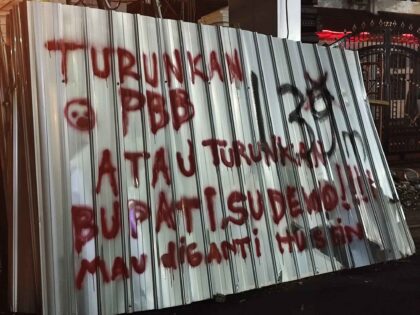 TURUNKAN
PBB
ATAU TURUNKAN
BUPATI SUDEWO!!!!
MAU DIGANTI HUSEIN